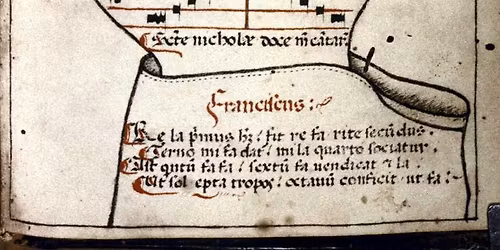 Scte nicholæ doce m̄ cātar
Francisus :
Re la p̄mus hʒ : fit re fa rite secūdus .
Terno mi fa dat / mi la quarto sociatur .
Ast qntū fa fa : sextū fa vendicat & la .
Vt sol epta tropos : octauū conficit ut fa :